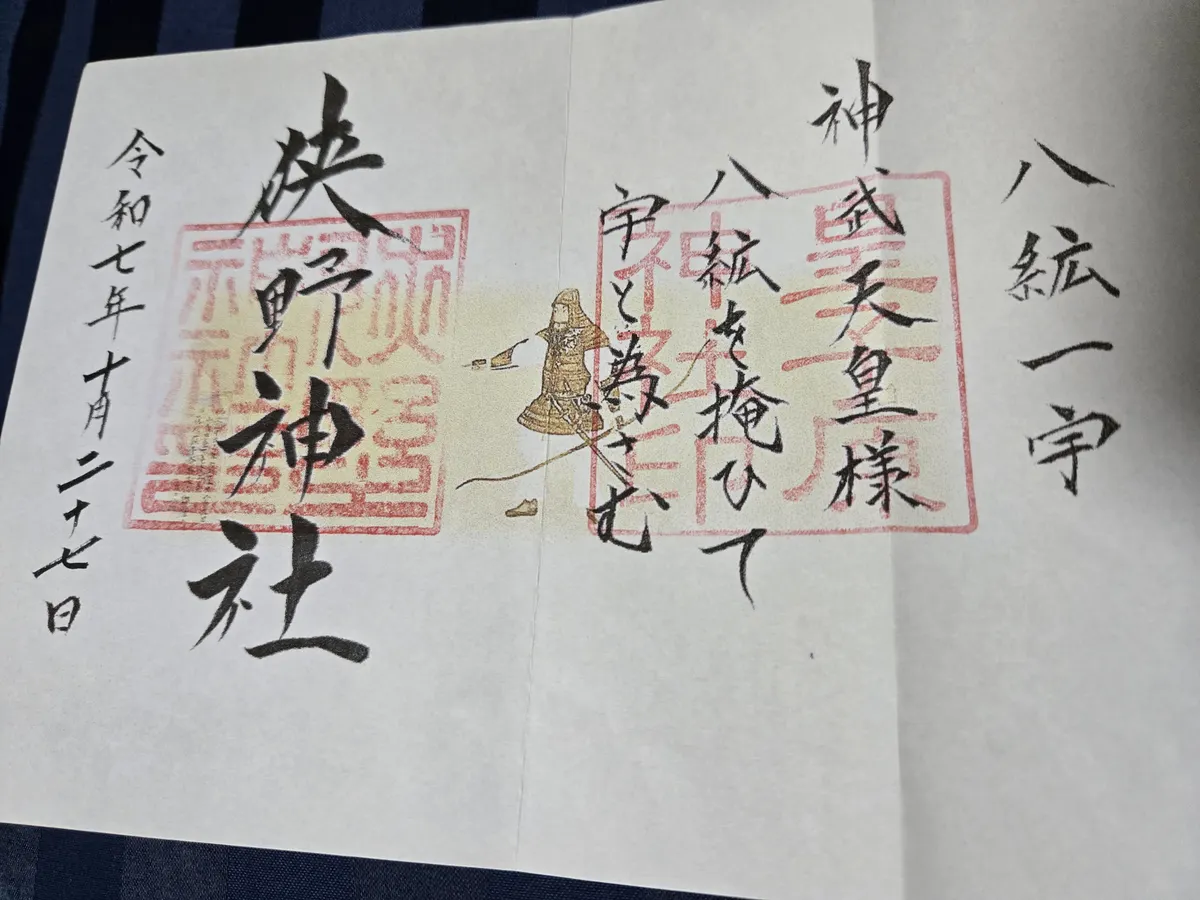 八紘一宇
神武天皇様
八紘を掩ひて
宇と為さむ
皇子原
神社印
狭野神社
令和七年十月二十七日